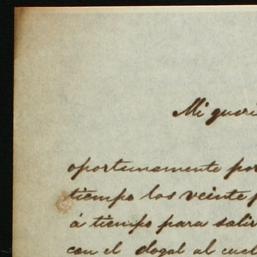 Mi queri
oportunamente por
tiempo los veinte p
á tiempo para salir
con el dogal al cuel